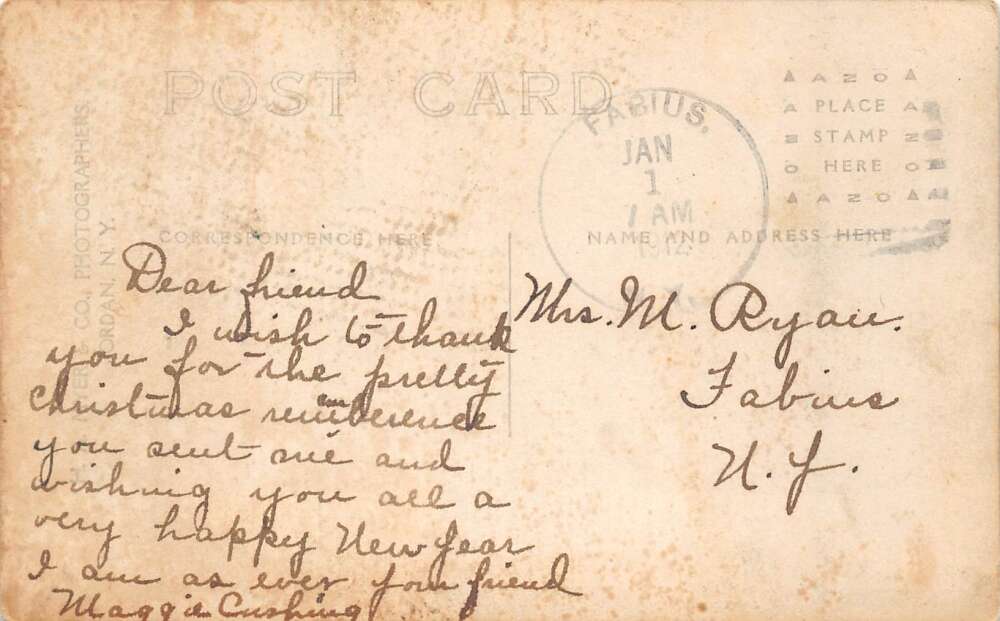 POST CARD
FABIUS,
JAN
1
7 AM
AZO
PLACE
STAMP
HERE
AZO
AZO
AZO
CO., PHOTOGRAPHERS.
JORDAN, N. Y.
CORRESPONDENCE HERE
NAME AND ADDRESS HERE
Dear friend
I wish to thank
you for the pretty
Christmas rememberence
you sent me and
wishing you all a
very happy New Year
I am as ever your friend
Maggie Cushing
Mrs. M. Ryan.
Fabius
N.Y.